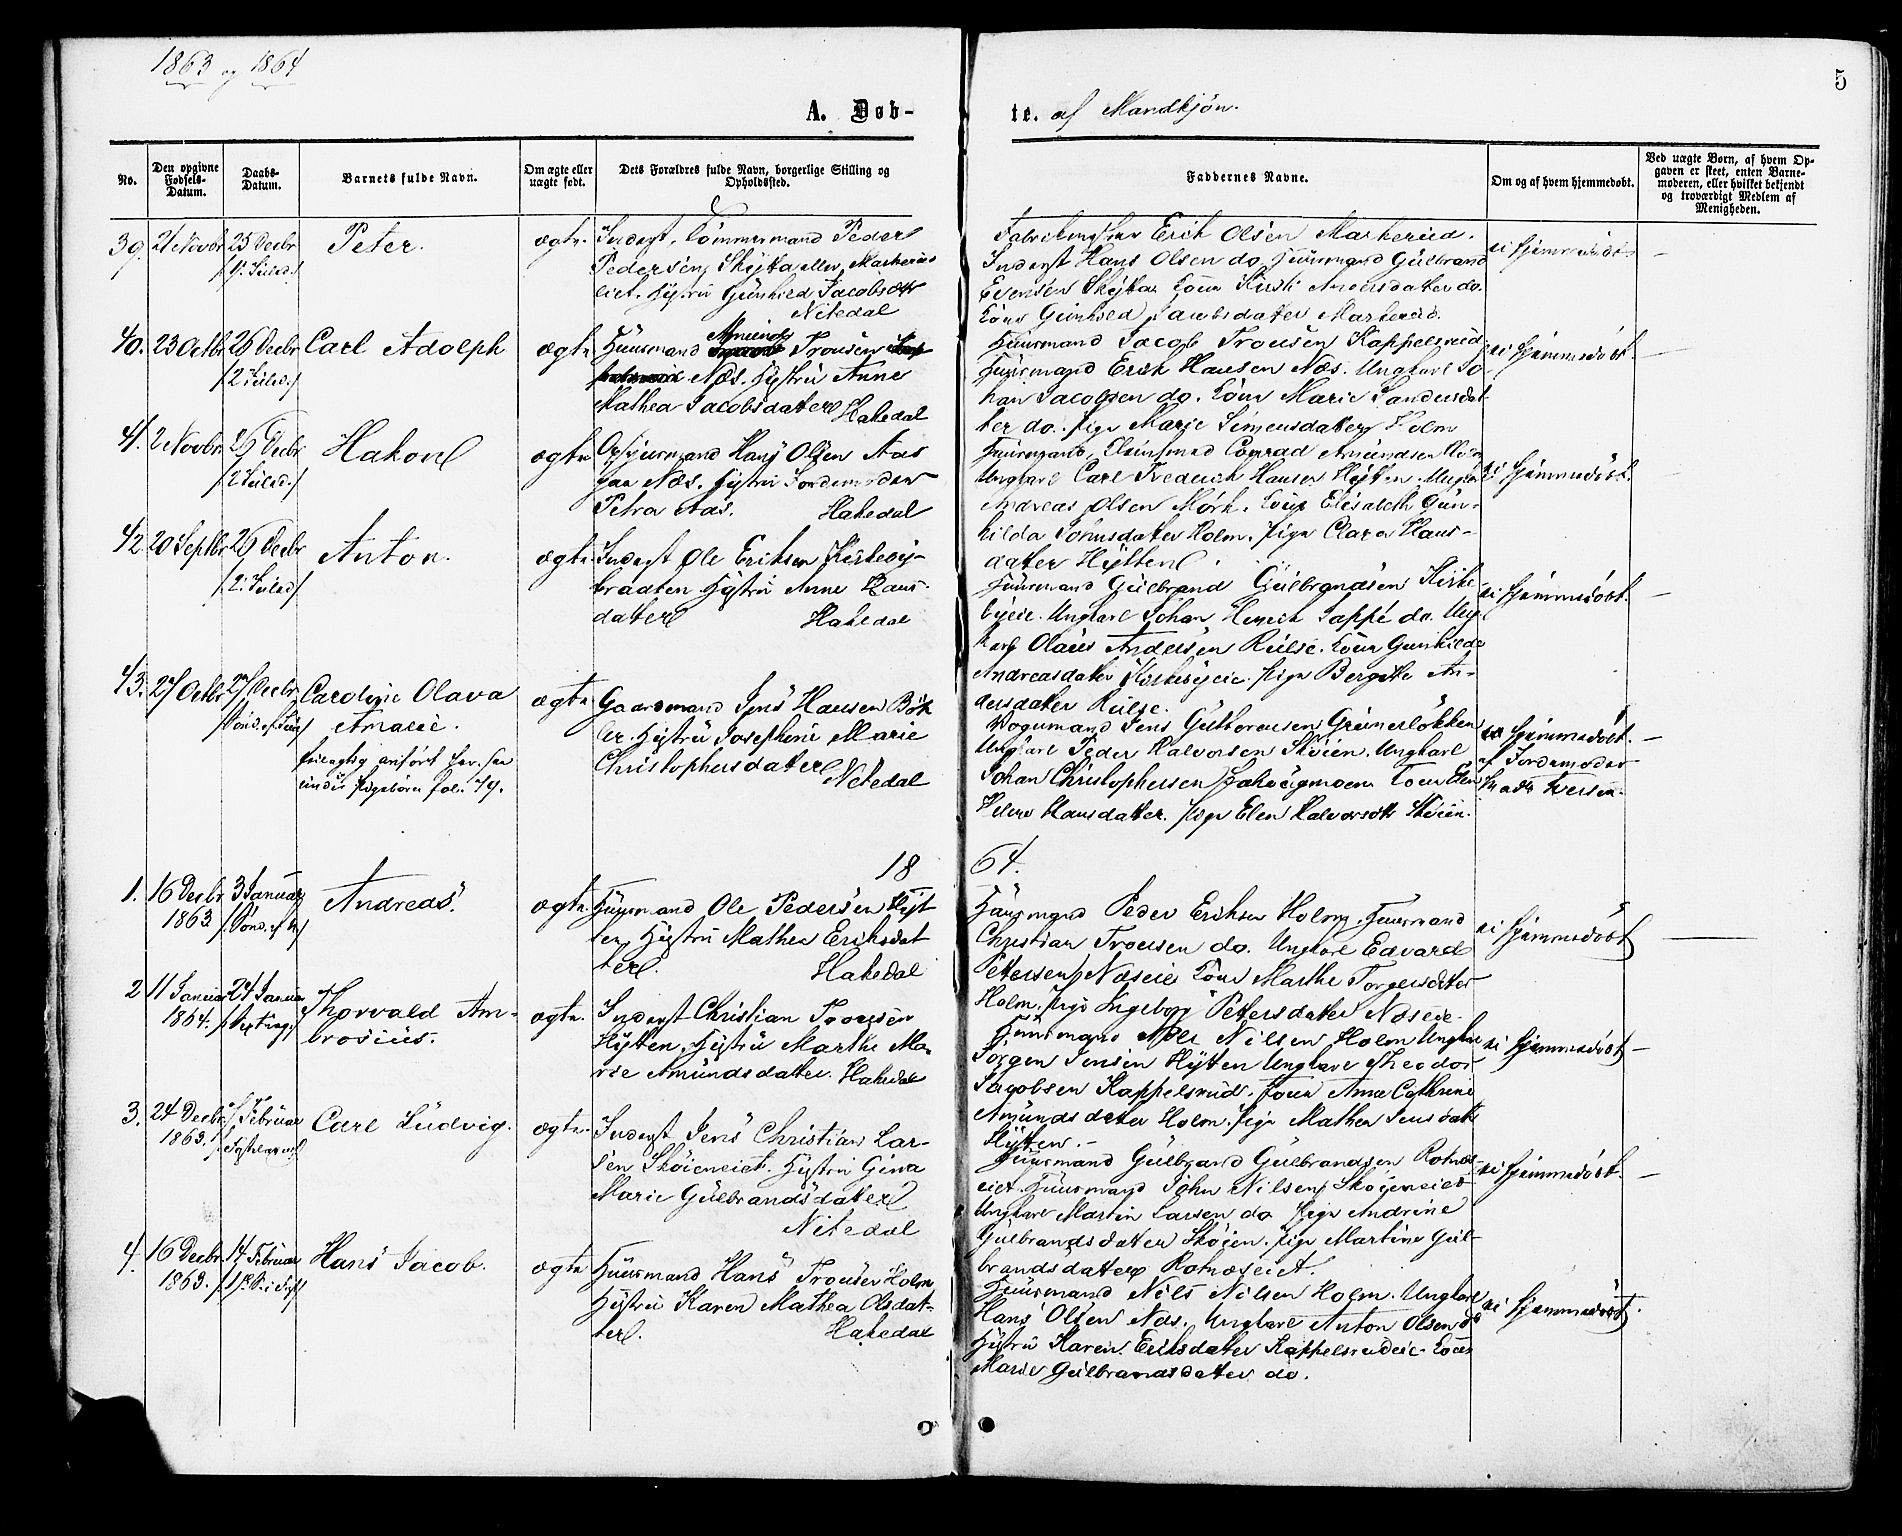 1863 og 1864
5
A. Døb-
te. af Mandkjön.
No.
Den opgivne Fødsels-Datum.
Daabs-Datum.
Barnets fulde Navn.
Om ægte eller uægte født.
Dets Forældres fulde Navn, borgerlige Stilling og Opholdssted.
Faddernes Navne.
Om og af hvem hjemmedøbt.
Ved uægte Børn, af hvem Op-
gaven er skeet, enten Barne-
moderen, eller hvilket bekjendt
og troværdigt Medlem af
Menigheden.
39. 21 Novbr 25 Decbr Peter. ægte.
Inderst, Tömmermand Peder
Pedersen, Skytta
eiet. Hustru Gunhild Jacobsdtr
Nitedal
Erik Olsen Markerud.
Inderst Hans Olsen do. Huusmand Gulbrand
Evensen Skytta. Kone Kirsti do.
Kone Gunhild Jacobsdater Markerud.
ei hjemmedöbt. —
40. 23 Octbr 26 Decbr Carl Adolph ægte
/2 Juled./
Huusmand Amund Trousen
Næs. Hustru Anne
Mathea Jacobsdater Hakedal
Huusmand Jacob Trousen Kappelsrud
Huusmand Erik Hansen Næs. Ungkarl Jo-
han Jacobsen do. Kone Marie
ter do. Pige Marie Simensdater Holm
ei hjemmedöbt. —
41. 2 Novbr. 26 Decbr Hakon ægte
/2 Juled./
Hans Olsen Aas
paa Næs. Hustru Jordemoder
Petra Aas. Hakedal
Huusmand, Conrad Amundsen
Ungkarl Carl Frederik Hansen Hytten. Ungkarl
Andreas Olsen Mörk. Kone Elisabeth Gun-
hilda Johnsdater Holm. Pige Clara Hans-
dater Hytten
ei hjemmedöbt. —
42 20 Septbr 26 Decbr Anton. ægte.
/2. Juled/
Inderst Ole Eriksen Kirkeby-
braaten Hustru Anne Hans-
dater Hakedal
Huusmand Gulbrand Gulbrandsen Kirke-
byeie. Ungkarl Johan Henrik Sappé do. Ung-
karl Olaus Andersen Rulse. Kone Gunhilde
Andreasdater Kirkebyeie. Pige Bergitte An-
dersdater Rulse.
ei hjemmedöbt. —
43. 27 Octbr 27 Decbr Caroline Olava
Amalie. ægte
urigtig anført her. see
under Pigebörn fol. 79.
Gaardmand Jens Hansen Böh-
ler. Hustru Josephine Marie
Christophersdater Nitedal
Vognmand Jens Gulbransen Grünerlökken
Ungkarl Peder Halvorsen Skoien. Ungkarl
Johan Christophersen Kone Elen
Helene Hansdatter. Pige Elen Halvorsdtr Skoien.
hjemmedöbt. —
af Jordemoder
18
64.
1. 16 Decbr 3 Januar Andreas. ægte.
1863
Huusmand Ole Pedersen Hyt
ten, Hustru Mathea Eriksdat
ter. Hakedal
Huusmand Peder Eriksen Holm. Huusmand
Christian Trousen do. Ungkarl Edvard
Petersen Næseie Kone Marthe Torgersdater
Holm. Pige Ingeborg Petersdater Næseie.
ei hjemmedöbt —
2 11 Januar 24 Januar Thorvald Am-
1864. brosius. ægte.
Inderst Christian Trousen
Hytten. Hustru Marthe Ma-
rie Amundsdater. Hakedal
Huusmand Nils Nilsen Holm Ungkarl
Jörgen Jensen Hytten Ungkarl Theodor
Jacobsen Kappelsrud. Kone Anne Cathrine
Amundsdater Holm. Pige Mathea Jensdatr
Hytten. —
ei hjemmedöbt —
3. 24 Decbr 7 Februar Carl Ludvig. ægte.
1863. /Fastelavns/
Inderst Jens Christian Lar-
sen Skoieneiet. Hustru Gina
Marie Gulbrandsdater
Nitedal
Huusmand Gulbrand Gulbrandsen Rotnæs-
eiet. Huusmand John Nilsen Skoieneiet
Ungkarl Martin Larsen do Pige Andrine
Gulbrandsdater Skoien. Pige Martine Gul-
brandsdater Rotnæseiet.
ei hjemmedöbt. —
4. 16 Decbr 14 Februar Hans Jacob. ægte
1863.
Huusmand Hans Trousen Holm
Hustru Karen Mathea Olsdat-
ter. Hakedal
Huusmand Nils Nilsen Holm. Ungkarl
Hans Olsen Næs. Ungkarl Anton Olsen do
Hustru Karen Eriksdater Kappelsrudeie. Kone
Marie Gulbrandsdater do.
ei hjemmedöbt.